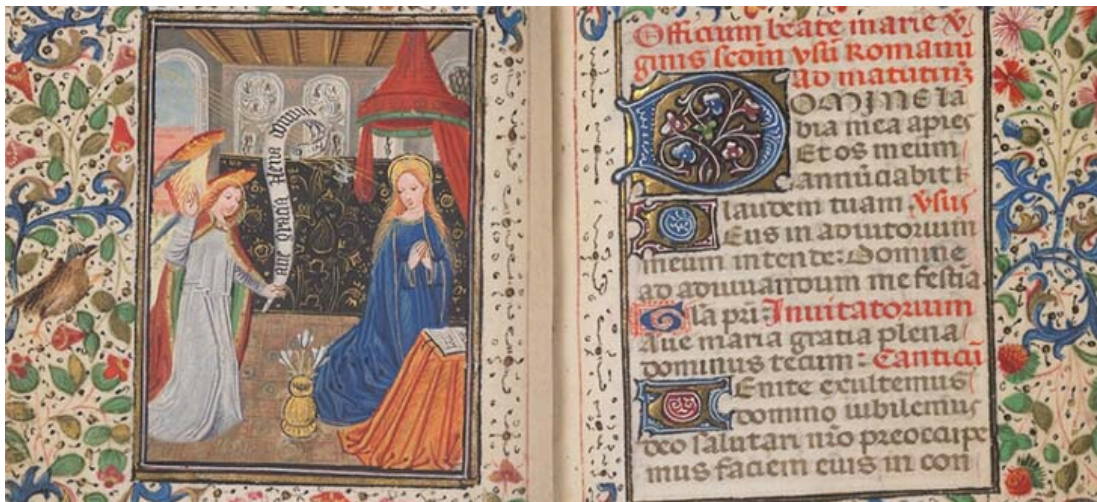 aue gracia plena
Officium beate marie v̄
ginis scdm̄ vsū Romanū
ad matutinʒ
DOMINE la
bia mea apies
Et os meum
annūciabit t̄
laudem tuam v̄sus
Eus in adiutorium
meum intende: Domine
ad adiuuandum me festīa
Gl̄a pr̄i: Inuitatorium
Aue maria gratia plena
dominus tecum: Canticū
Enite exultemus
domino iubilemus
deo salutari n̄ro preoccupe
mus faciem eius in con